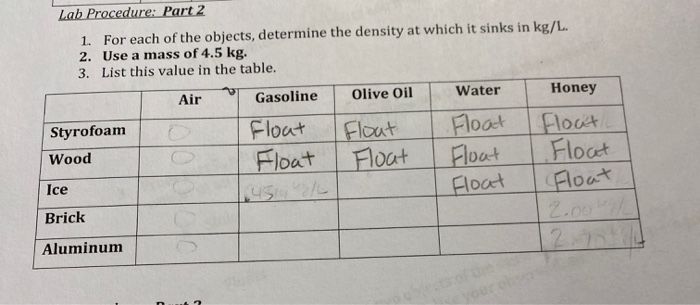 Lab Procedure: Part 2
1. For each of the objects, determine the density at which it sinks in kg/L.
2. Use a mass of 4.5 kg.
3. List this value in the table.
Air Gasoline Olive Oil Water Honey
Styrofoam 0 Float Float Float Float
Wood 0 Float Float Float Float
Ice Float Float
Brick 0 2.00
Aluminum 0